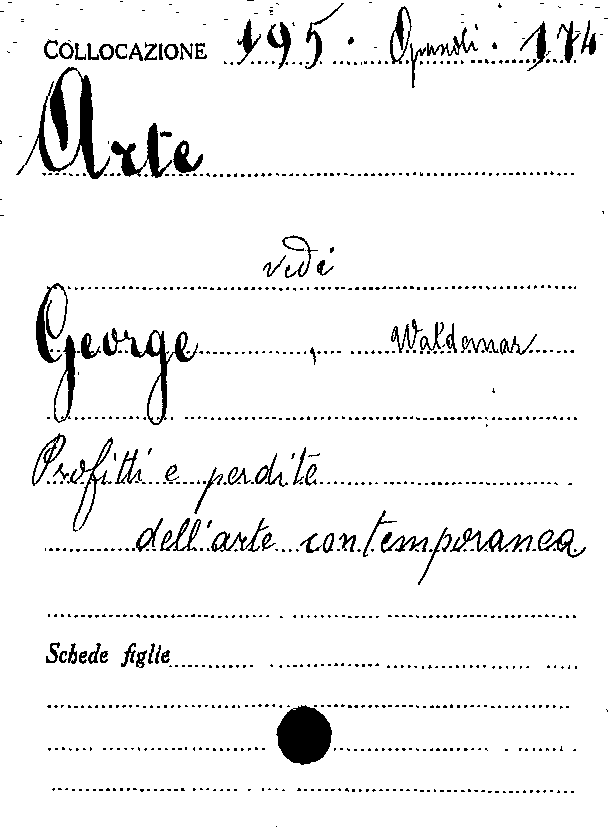 COLLOCAZIONE 195. Opuscoli. 174
Arte
vedi
George, Waldemar
Profitti e perdite
dell'arte contemporanea
Schede figlie